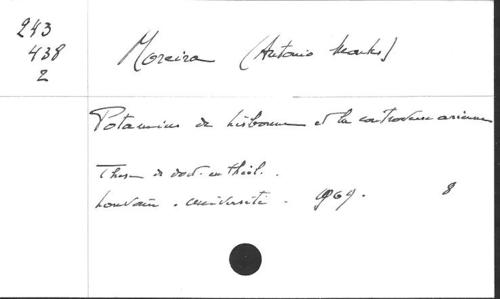 243
438
2
Moreira (Antonio Montes)
Potamius de Lisbonne et la controverse arienne
Thèse de doct. en théol.
Louvain. Université. 1969. 8